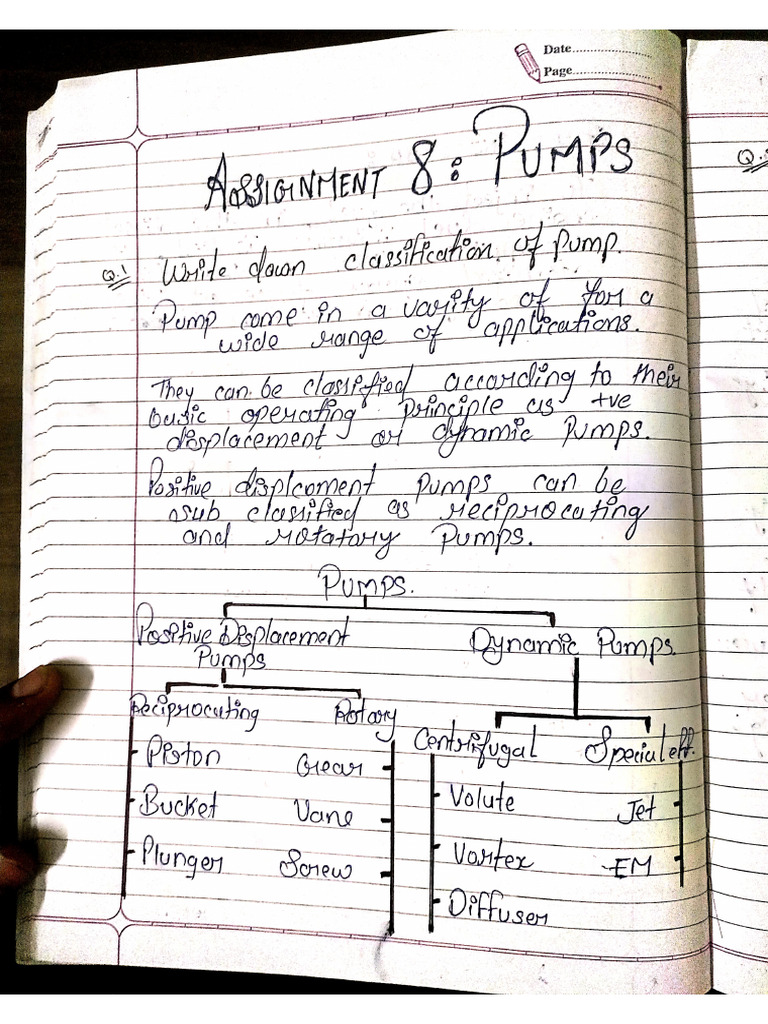 Date..................
Page..................
ASSIGNMENT 8: PUMPS
Q.1 Write down classification of Pump.
Pump come in a varity of for a
wide range of applications.
They can be classified according to their
basic operating principle as +ve
displacement or dynamic Pumps.
Positive displcoment pumps can be
sub classified as reciprocating
and rotatory Pumps.
PUMPS.
Positive Displacement Dynamic Pumps.
Pumps
Reciprocating Rotary Centrifugal Special eff.
Piston Gear Volute Jet
Bucket Vane Vortex EM
Plunger Screw Diffuser